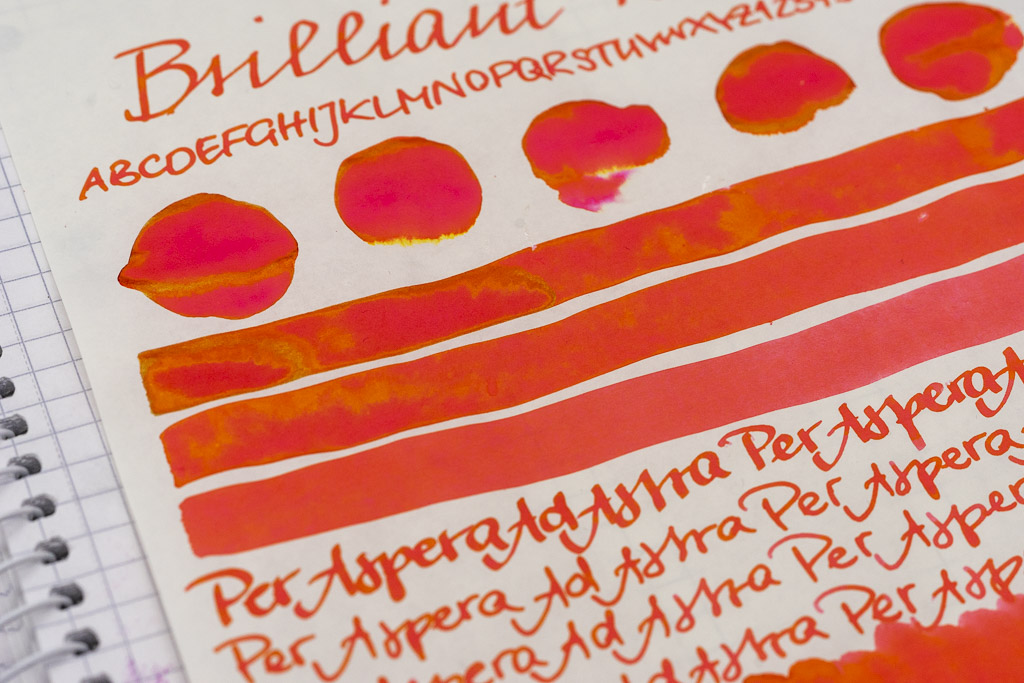 Brilliant
ABCDEFGHIJKLMNOPQRSTUVWXYZ12345
Per Aspera Ad Astra Per Aspera A
Per Aspera Ad Astra Per Aspera
Aspera Ad Astra Per Asper
Ad Astra Per Asp